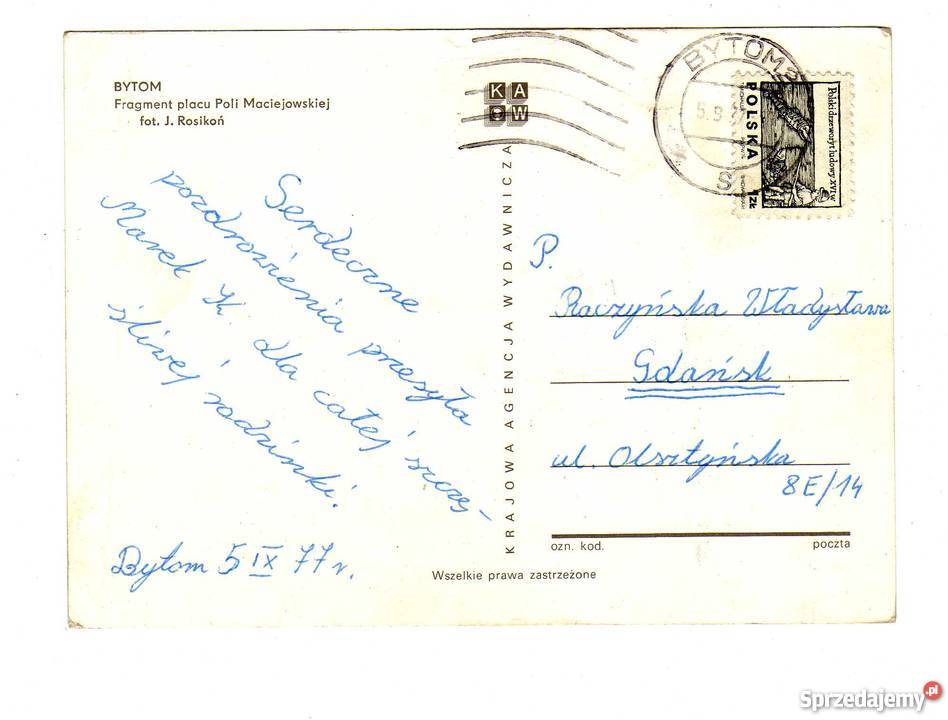 BYTOM
Fragment placu Poli Maciejowskiej
fot. J. Rosikoń
Serdeczne
pozdrowienia przesyła
Marek K. dla całej szczęś-
śliwej rodzinki.
Bytom 5 IX 77 r.
KAW
KRAJOWA AGENCJA WYDAWNICZA
BYTOM
5.9
POLSKA
Polski drzeworyt ludowy XVI w
1 ZŁ
P.
Raczyńska Władysława
Gdańsk
ul. Olsztyńska
8E/14
ozn. kod.
poczta
Wszelkie prawa zastrzeżone
Sprzedajemy.pl